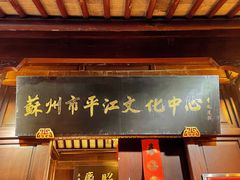 蘇州市平江文化中心